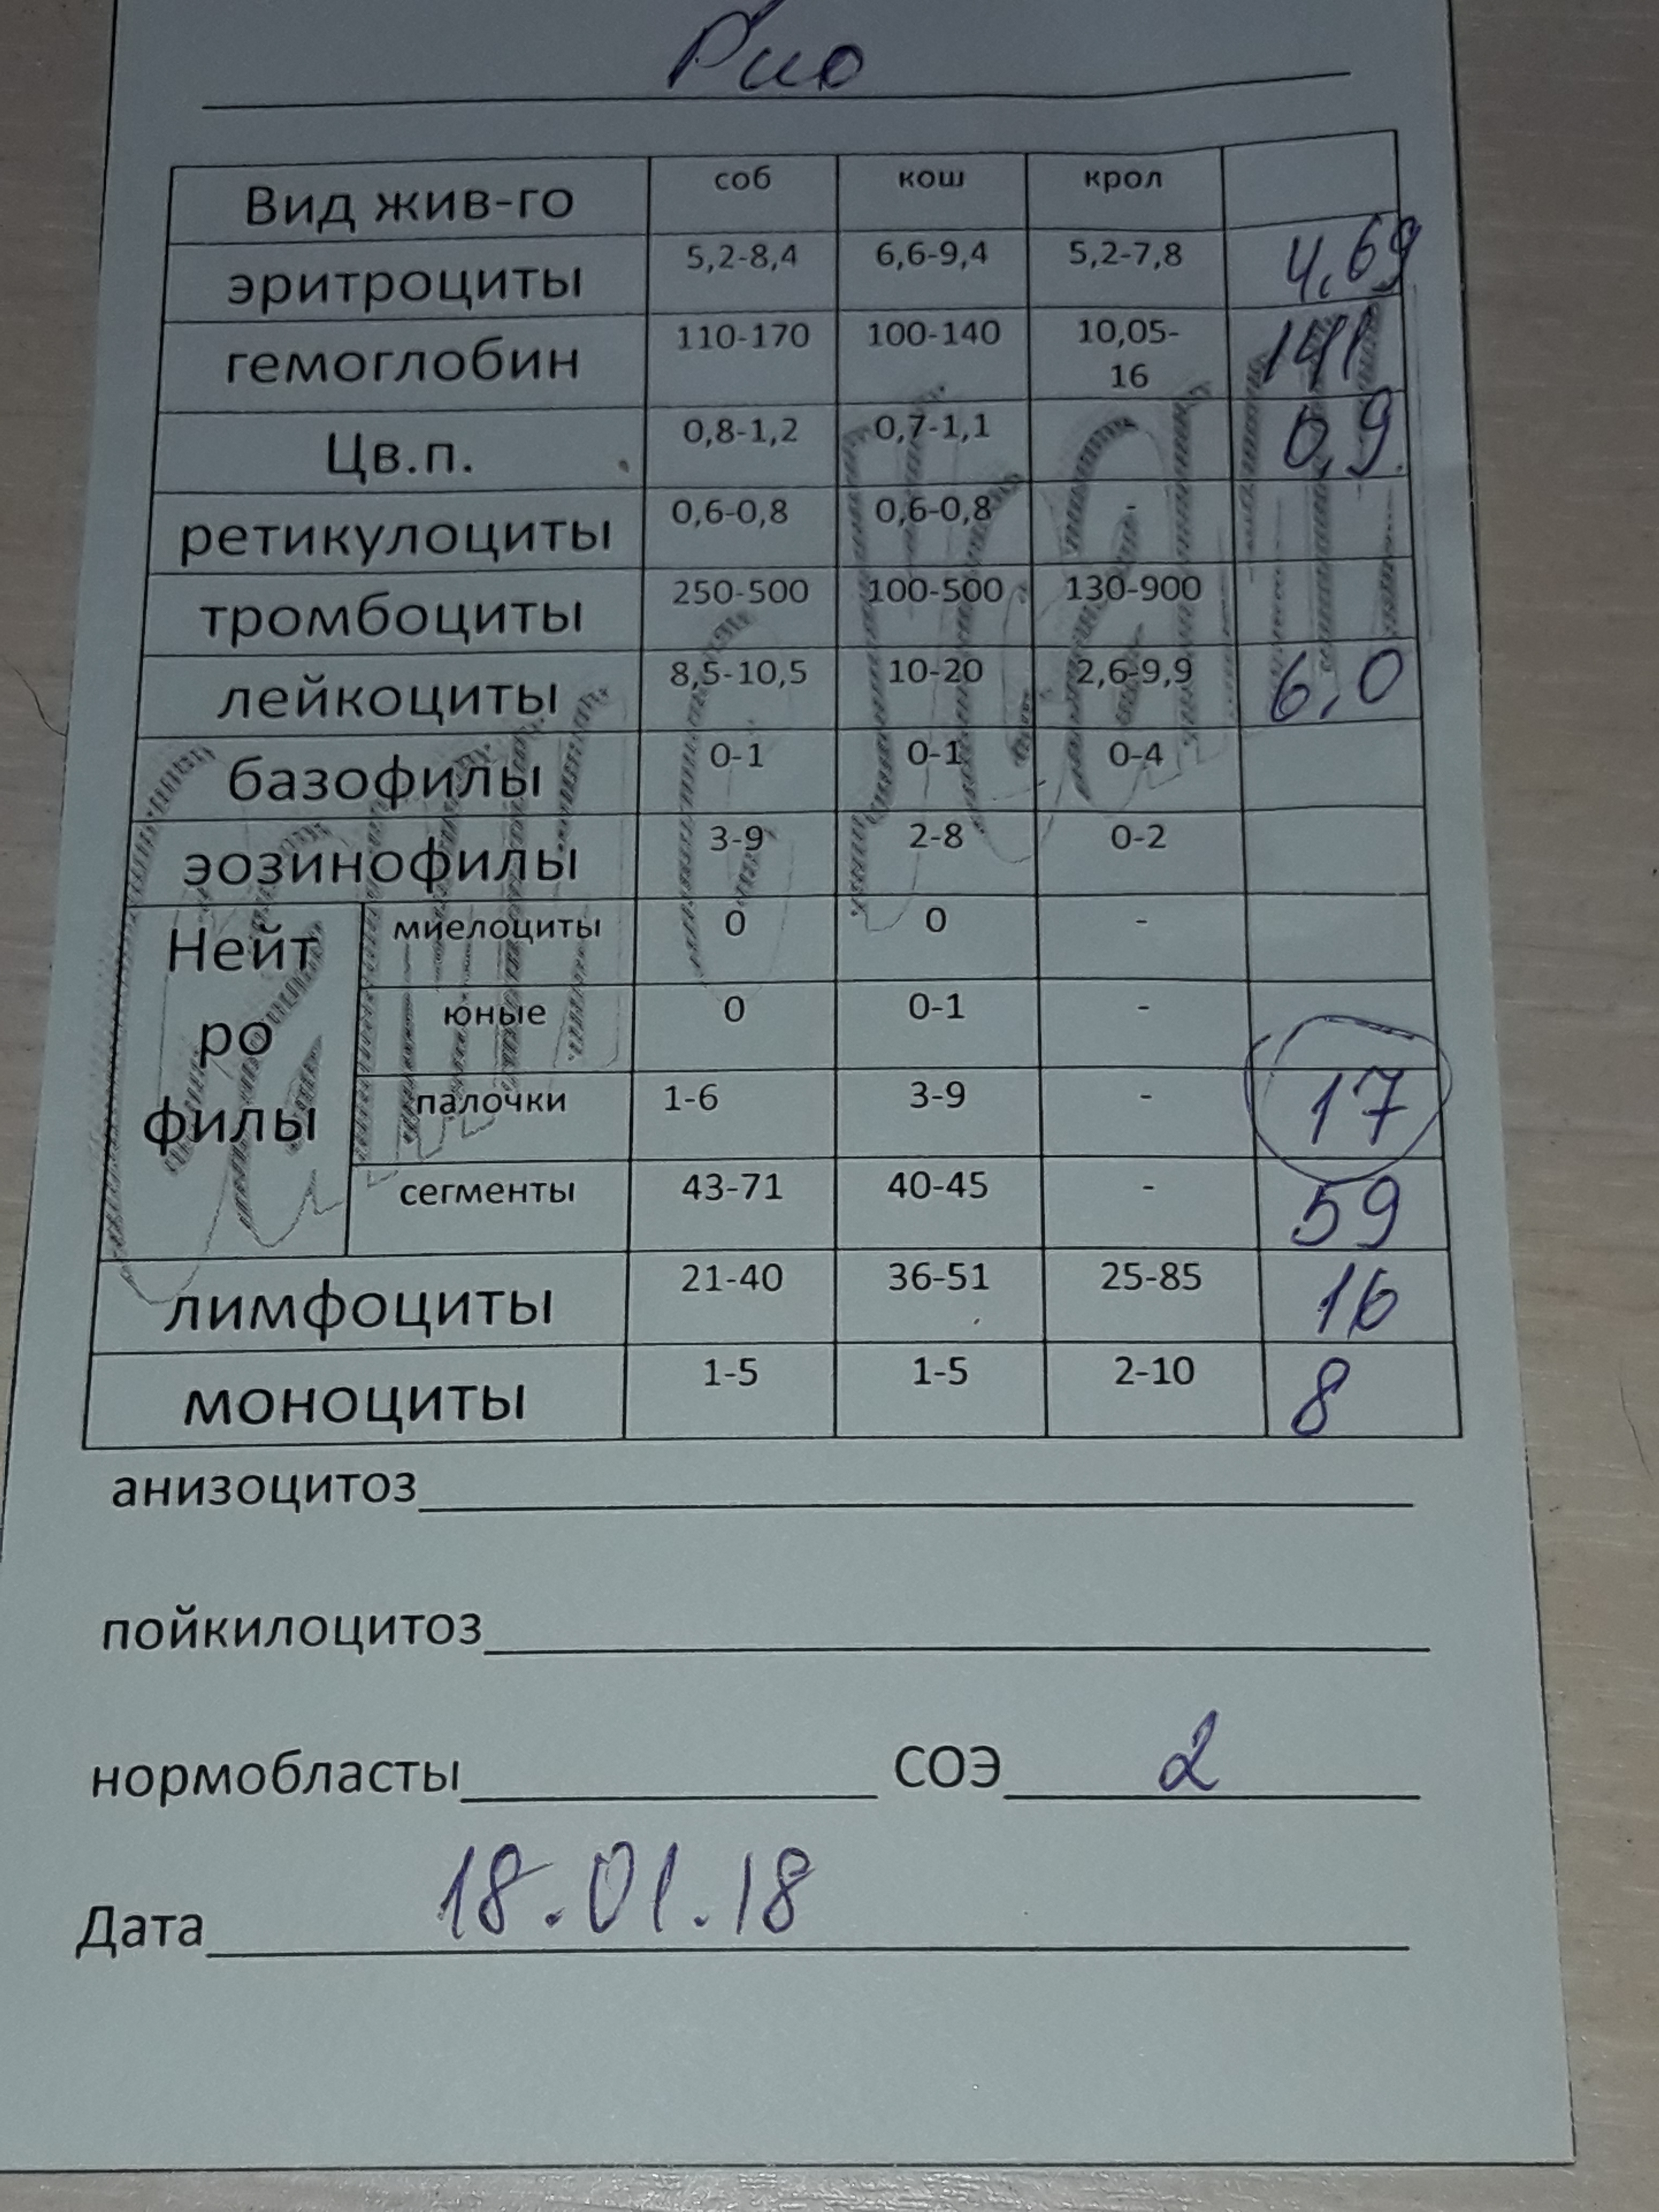 Рио
Вид жив-го соб кош крол
эритроциты 5,2-8,4 6,6-9,4 5,2-7,8 4,69
гемоглобин 110-170 100-140 10,05-16 141
Цв.п. 0,8-1,2 0,7-1,1 0,9
ретикулоциты 0,6-0,8 0,6-0,8 -
тромбоциты 250-500 100-500 130-900
лейкоциты 8,5-10,5 10-20 2,6-9,9 6,0
базофилы 0-1 0-1 0-4
эозинофилы 3-9 2-8 0-2
Нейт
ро
филы
миелоциты 0 0 -
юные 0 0-1 -
палочки 1-6 3-9 - 17
сегменты 43-71 40-45 - 59
лимфоциты 21-40 36-51 25-85 16
моноциты 1-5 1-5 2-10 8
анизоцитоз
пойкилоцитоз
нормобласты СОЭ 2
Дата 18.01.18